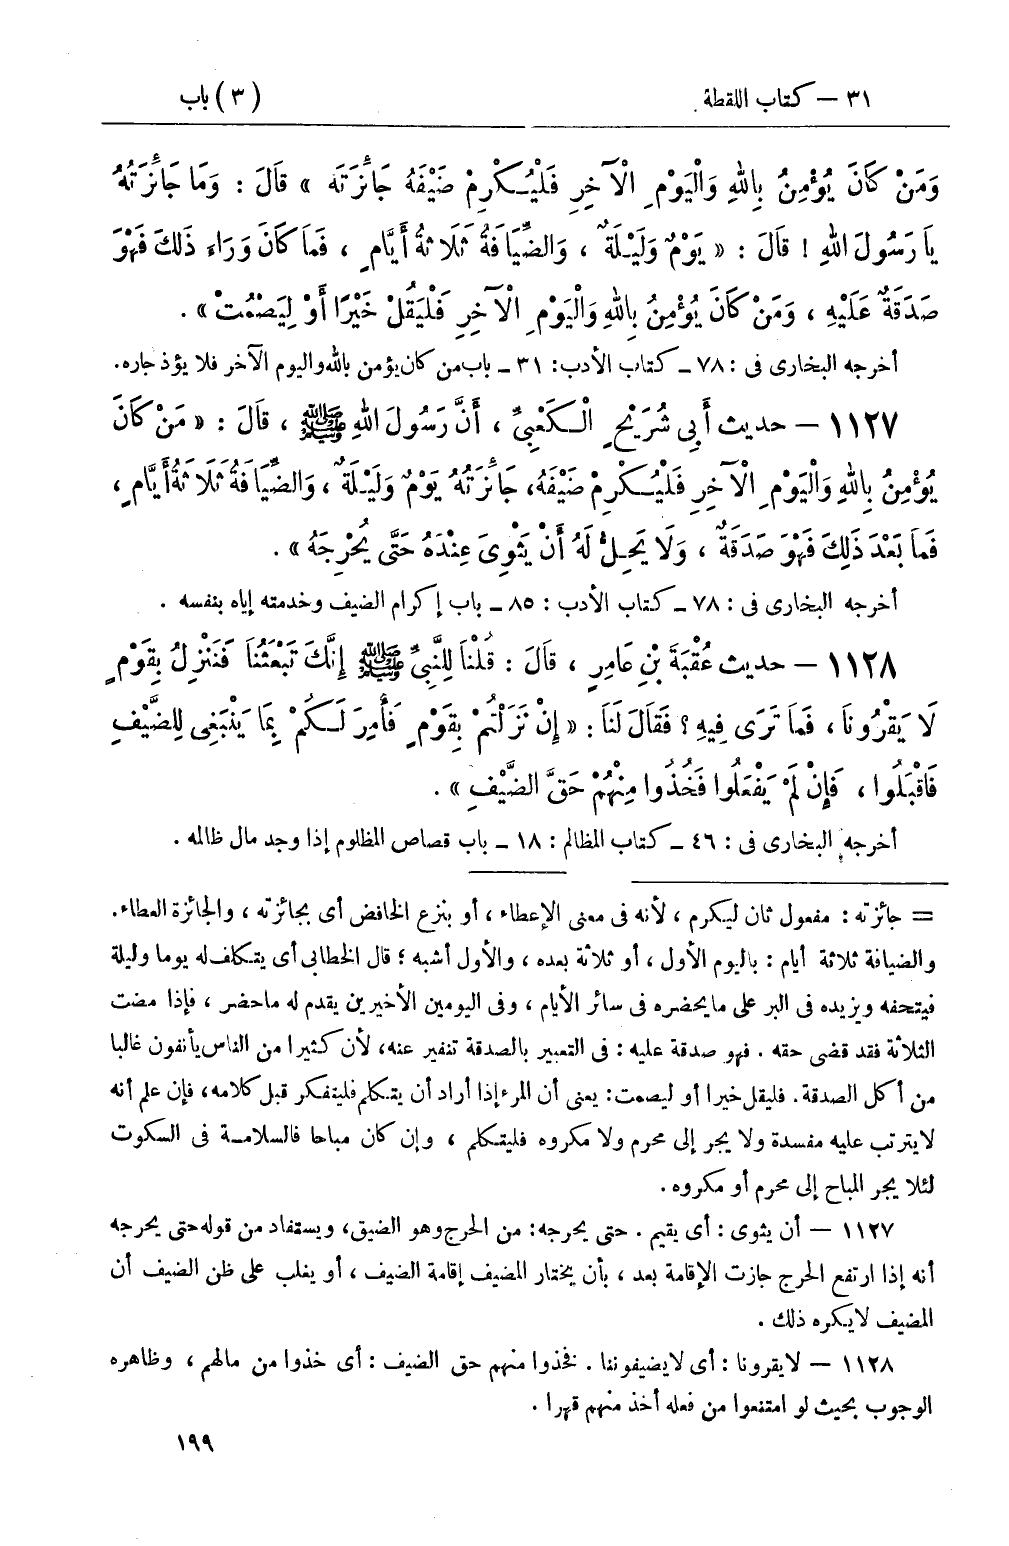 ٣١ – كتاب اللقطة (٣) باب
وَمَنْ كَانَ يُؤْمِنُ بِاللهِ وَالْيَوْمِ الْآخِرِ فَلْيُكْرِمْ ضَيْفَهُ جَائِزَتَهَ » قَالَ : وَمَا جَائِزَتُهُ
يَا رَسُولَ اللهِ ! قَالَ : « يَوْمٌ وَلَيْلَةٌ ، وَالضِّيَافَةُ ثَلَاثَةُ أَيَّامٍ ، فَمَا كَانَ وَرَاءَ ذَلِكَ فَهْوَ
صَدَقَةٌ عَلَيْهِ ، وَمَنْ كَانَ يُؤْمِنُ بِاللهِ وَالْيَوْمِ الْآخِرِ فَلْيَقُلْ خَيْرًا أَوْ لِيَصْمُتْ » .
أخرجه البخارى فى : ٧٨ ـ كتاب الأدب: ٣١ ـ باب من كان يؤمن بالله واليوم الآخر فلا يؤذ جاره.
١١٢٧ – حديث أَبِى شُرَيْحٍ الْكَعْبِىِّ ، أَنَّ رَسُولَ اللهِ ﷺ ، قَالَ : « مَنْ كَانَ
يُؤْمِنُ بِاللهِ وَالْيَوْمِ الْآخِرِ فَلْيُكْرِمْ ضَيْفَهُ، جَائِزَتُهُ يَوْمٌ وَلَيْلَةٌ ، وَالضِّيَافَةُ ثَلَاثَةُ أَيَّامٍ ،
فَمَا بَعْدَ ذَلِكَ فَهْوَ صَدَقَةٌ ، وَلَا يَحِلُّ لَهُ أَنْ يَثْوِىَ عِنْدَهُ حَتَّى يُحْرِجَهُ » .
أخرجه البخارى فى : ٧٨ ـ كتاب الأدب : ٨٥ ـ باب إكرام الضيف وخدمته إياه بنفسه .
١١٢٨ – حديث عُقْبَةَ بْنِ عَامِرٍ ، قَالَ : قُلْنَا لِلنَّبِىِّ ﷺ إِنَّكَ تَبْعَثُنَا فَنَنْزِلُ بِقَوْمٍ
لَا يَقْرُونَا ، فَمَا تَرَى فِيهِ ؟ فَقَالَ لَنَا : « إِنْ نَزَلْتُمْ بِقَوْمٍ فَأُمِرَ لَكُمْ بِمَا يَنْبَغِى لِلضَّيْفِ
فَاقْبَلُوا ، فَإِنْ لَمْ يَفْعَلُوا فَخُذُوا مِنْهُمْ حَقَّ الضَّيْفِ » .
أخرجه البخارى فى : ٤٦ ـ كتاب المظالم : ١٨ ـ باب قصاص المظلوم إذا وجد مال ظالمه .
= جائزته : مفعول ثان ليكرم ، لأنه فى معنى الإعطاء ، أو بنزع الخافض أى بجائزته ، والجائزة العطاء.
والضيافة ثلاثة أيام : باليوم الأول ، أو ثلاثة بعده ، والأول أشبه ؛ قال الخطابى أى يتكلف له يوما وليلة
فيتحفه ويزيده فى البر على ما يحضره فى سائر الأيام ، وفى اليومين الأخيرين يقدم له ما حضر ، فإذا مضت
الثلاثة فقد قضى حقه . فهو صدقة عليه : فى التعبير بالصدقة تنفير عنه، لأن كثيرا من الناس يأنفون غالبا
من أكل الصدقة. فليقل خيرا أو ليصمت : يعنى أن المرء إذا أراد أن يتكلم فليتفكر قبل كلامه، فإن علم أنه
لا يترتب عليه مفسدة ولا يجر إلى محرم ولا مكروه فليتكلم ، وإن كان مباحا فالسلامة فى السكوت
لئلا يجر المباح إلى محرم أو مكروه.
١١٢٧ – أن يثوى : أى يقيم . حتى يحرجه: من الحرج وهو الضيق، ويستفاد من قوله حتى يحرجه
أنه إذا ارتفع الحرج جازت الإقامة بعد ، بأن يختار المضيف إقامة الضيف ، أو يغلب على ظن الضيف أن
المضيف لا يكره ذلك .
١١٢٨ – لا يقرونا : أى لا يضيفوننا . فخذوا منهم حق الضيف : أى خذوا من مالهم ، وظاهره
الوجوب بحيث لو امتنعوا من فعله أخذ منهم قهرا .
١٩٩